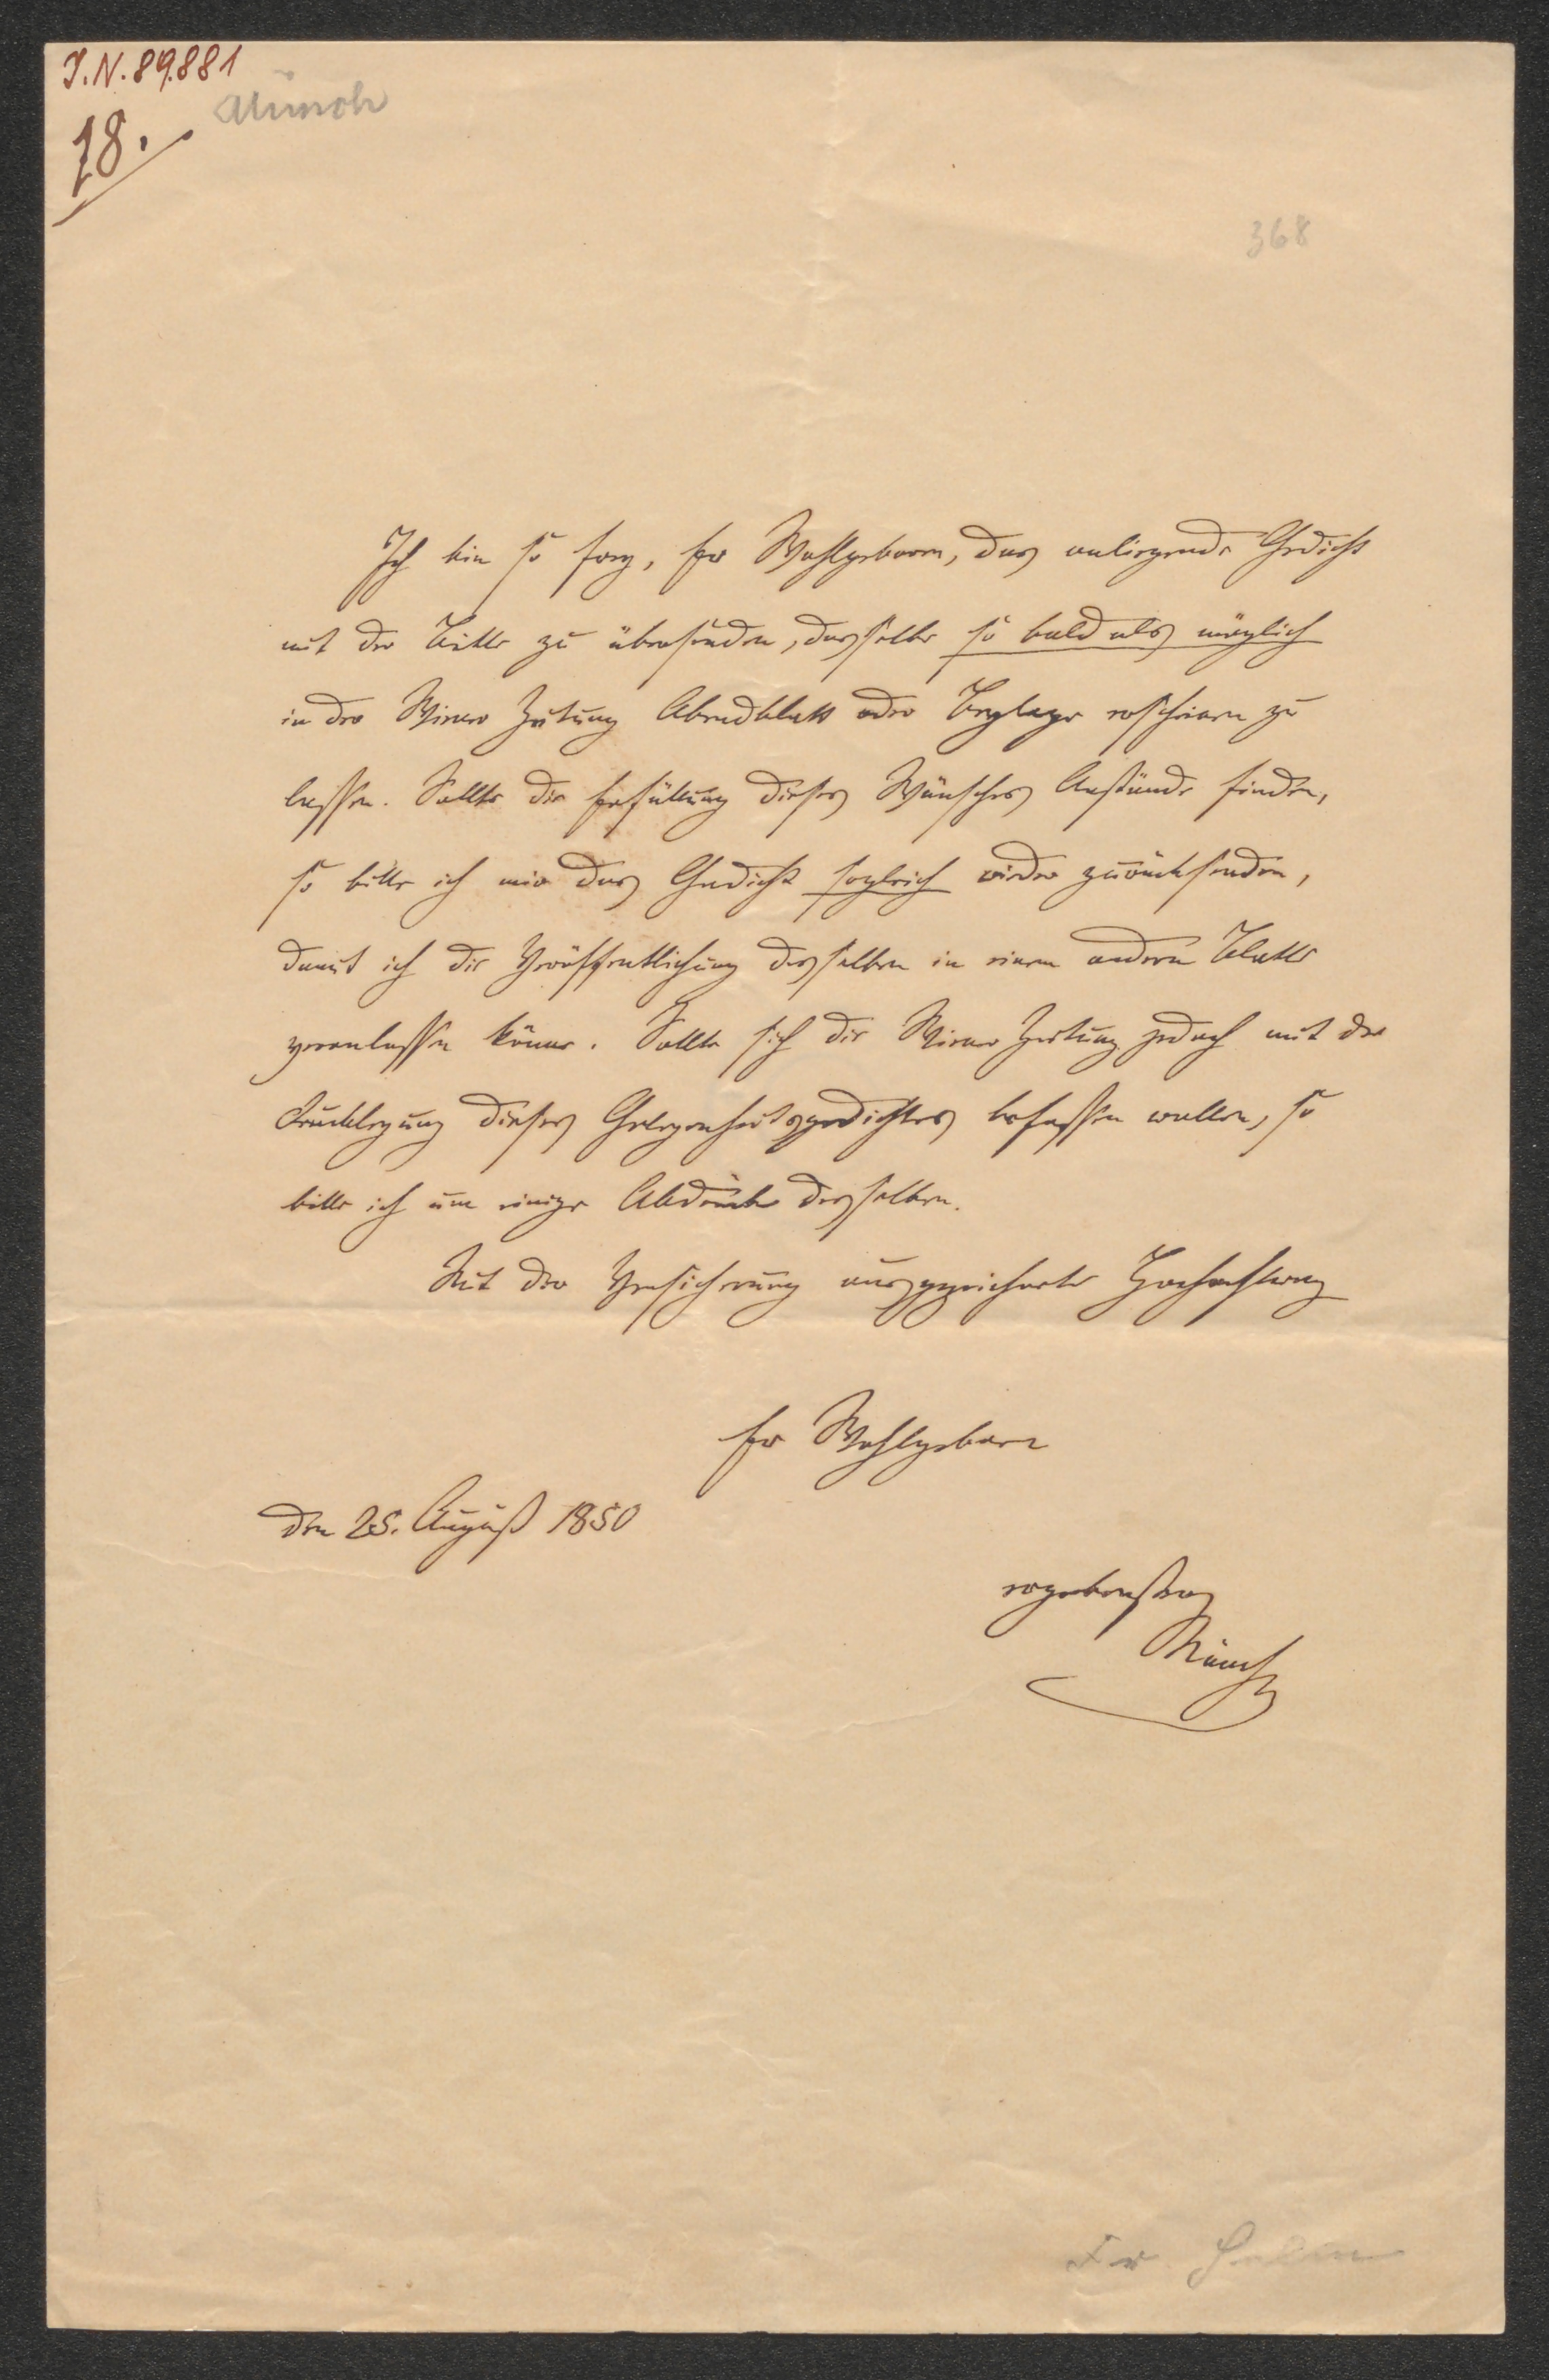 I.N. 89.881
Münch
18.
368
Ich bin so frey, Euer Wohlgeboren, das anliegende Gedicht
mit der Bitte zu übersenden, dasselbe so bald als möglich
in der Wiener Zeitung Abendblatt oder Beylage erscheinen zu
lassen. Sollte die Erfüllung dieses Wunsches Anstände finden,
so bitte ich mir das Gedicht sogleich wieder zurücksenden,
damit ich die Veröffentlichung desselben in einem andern Blatte
veranlassen könne. Sollte sich die Wiener Zeitung jedoch mit der
Drucklegung dieses Gelegenheitsgedichtes befassen wollen, so
bitte ich um einige Abdrücke desselben.
Mit der Versicherung ausgezeichneter Hochachtung
Euer Wohlgeboren
den 25. August 1850
ergebenster
Münch